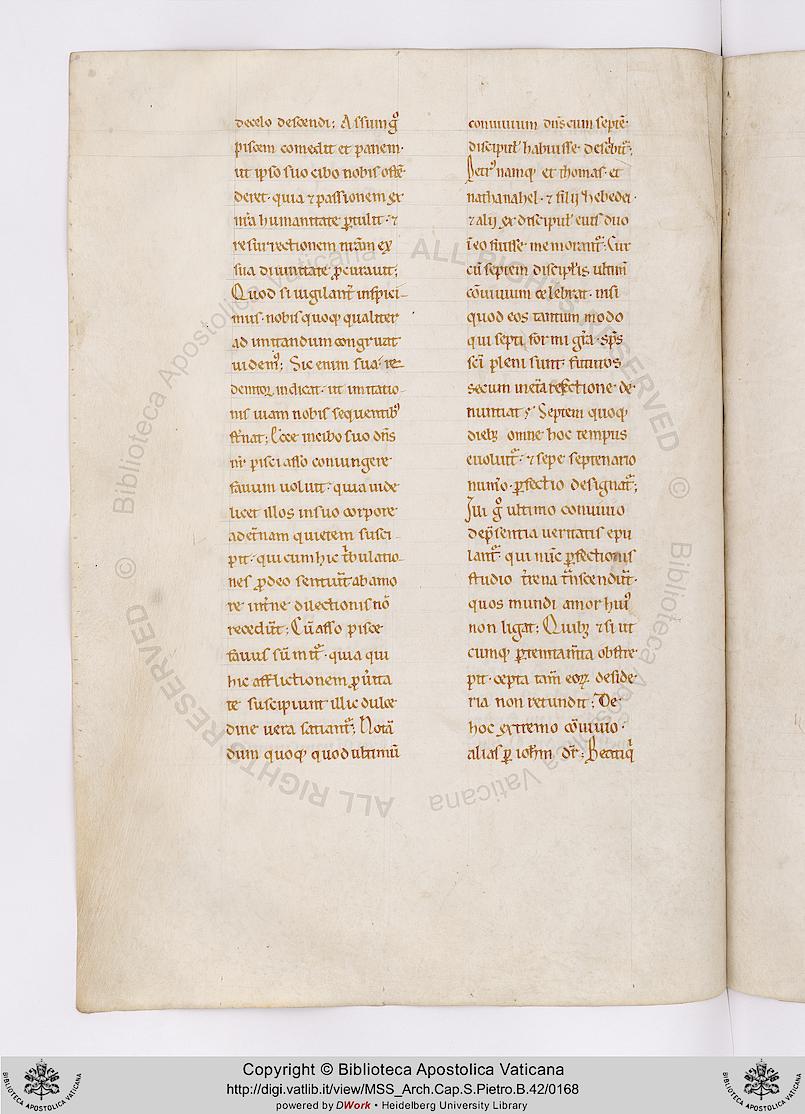 decelo descendi; Assumꝗͦ
piscem comedit et panem·
ut ipso suo cibo nobis ostē
deret· quia ⁊ passionem ex
nr̄a humanitate ꝑtulit· ⁊
resurrectionem nr̄am ex
sua diuinitate ꝓcurauit;
Quod si uigilant̄ inspici-
mus· nobis quoqꝫ qualiter
ad imitandum congruat
uidemꝰ; Sic enim sua re-
demitor indicat· ut imitatio-
nis uiam nobis sequentibꝰ
st̄nat; Ecce in cibo suo dn̄s
nr̄ pisci asso coniungere
fauum uoluit· quia uide
licet illos in suo corpore
ad et̄nam quietem susci-
pit· qui cum hic t̄bulatio-
nes ꝓ deo sentiunt̄ ab amo
re int̄ne dilectionis nō
recedūt; Cū asso pisce
fauus sumit᷑· quia qui
hic afflictionem ꝓ u̇ita
te suscipiunt illic dulce
dine uera satiant᷑; Notā
dum quoqꝫ quod ultimū
conuiuium dn̄s cum septē·
discipuł habuisse describit᷑;
Petrꝰ namqꝫ et thomas· et
nathanahel· ⁊ filij Zebedei·
⁊ alij ex discipuł eius duo
ī eo fuisse memorant᷑; Cur
cū septem discipłis ultimū
cōuiuium celebrat· nisi
quod eos tantum modo
qui septiformi gr̄a· sp̄s
sc̄i pleni sunt· futuros
secum in et̄na refectione de
nuntiat; Septem quoqꝫ
diebꝫ omne hoc tempus
euoluit᷑· ⁊ sepe septenario
num̄o· ꝑfectio designat᷑;
Illi gͦ ultimo conuiuio
de pr̄sentia ueritatis epu
lant᷑· qui nūc ꝑfectionis
studio t̄rena t̄nscendūt·
quos mundi amor huiꝰ
non ligat; Quibꝫ ⁊ si ut
cumqꝫ ꝑ temtam̄ta obstre
pit· cepta tam̄ eoꝝ deside
ria non retundit; De
hoc extremo cōuiuio·
alias ꝑ ioh̄m dr̄; Beatiqͥ
Copyright © Biblioteca Apostolica Vaticana
http://digi.vatlib.it/view/MSS_Arch.Cap.S.Pietro.B.42/0168
powered by DWork • Heidelberg University Library